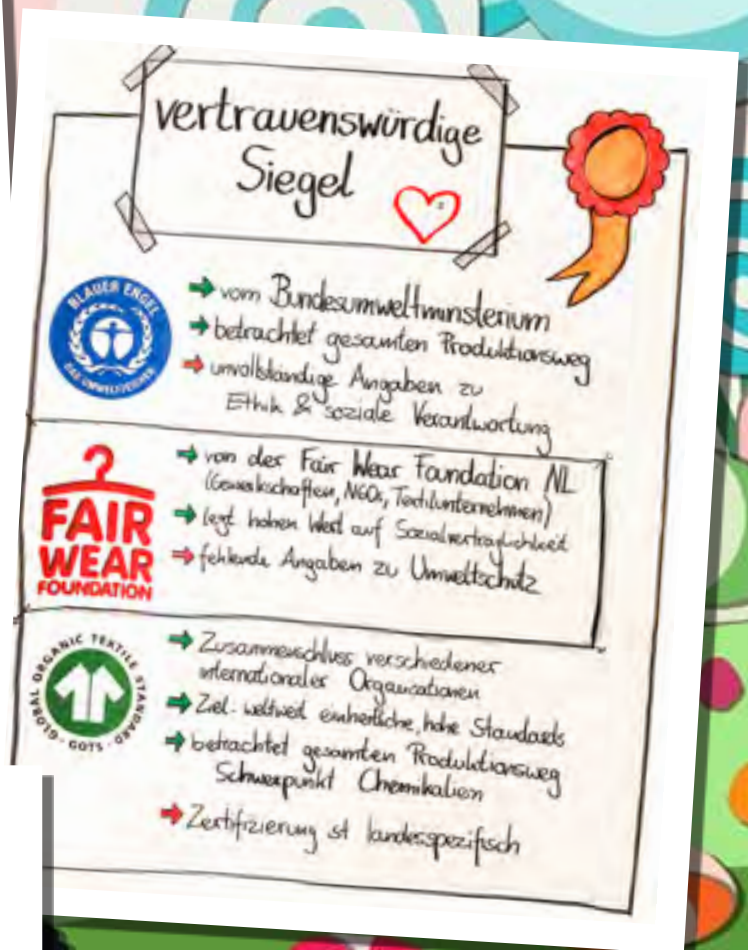 vertrauenswürdige
Siegel
BLAUER ENGEL
DAS UMWELTZEICHEN
vom Bundesumweltminsterium
betrachtet gesamten Produktionsweg
unvollständige Angaben zu
Ethik & soziale Verantwortung
FAIR
WEAR
FOUNDATION
von der Fair Wear Foundation NL
(Gewerkschaften, NGOs, Textilunternehmen)
legt hohen Wert auf Sozialverträglichkeit
fehlende Angaben zu Umweltschutz
GLOBAL ORGANIC TEXTILE STANDARD
· GOTS ·
Zusammenschluss verschiedener
internationaler Organisationen
Ziel: weltweit einheitliche, hohe Standards
betrachtet gesamten Produktionsweg
Schwerpunkt Chemikalien
Zertifizierung ist landesspezifisch